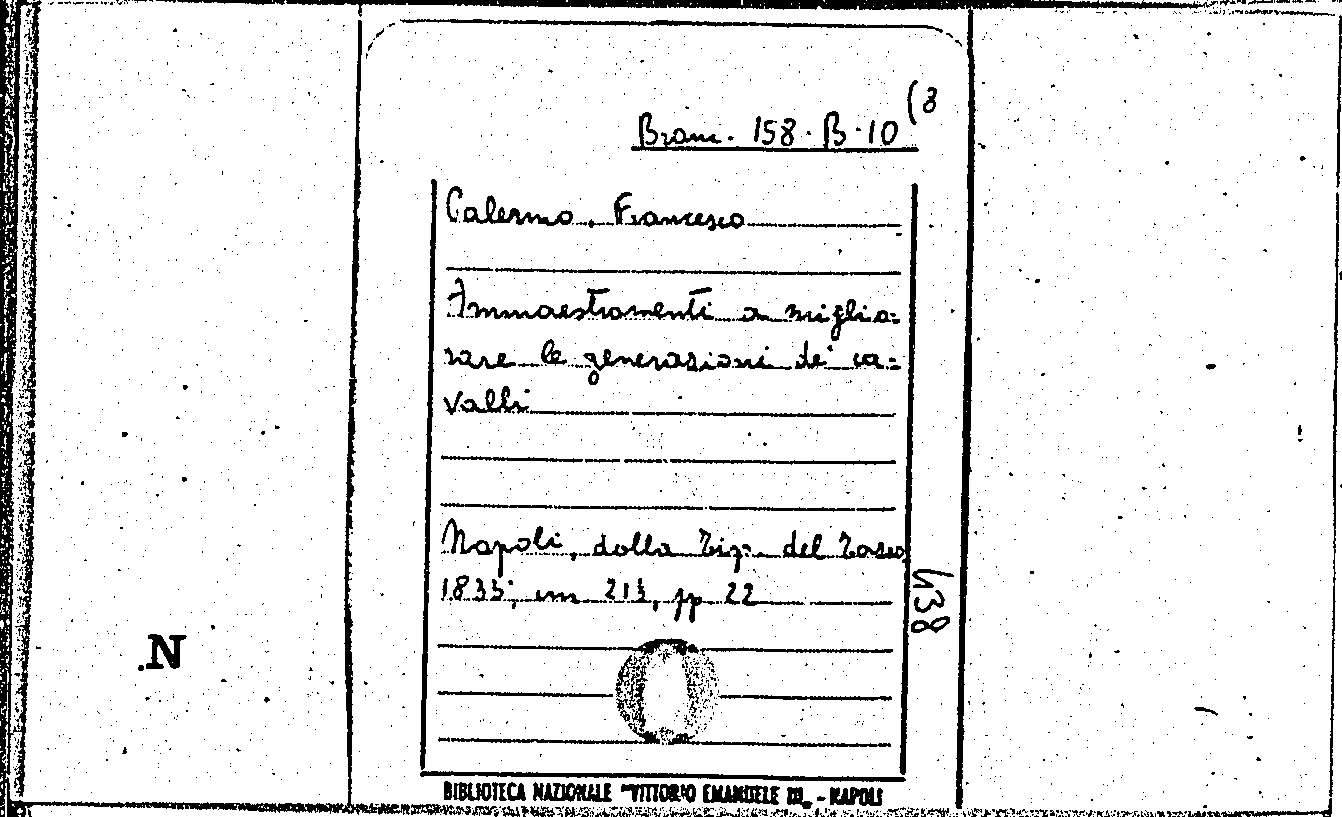 Branc. 158. B. 10 (8
Calermo, Francesco
Ammaestramenti a miglio=
rare le generazioni de' ca=
valli
Napoli, dalla Tip. del Tasso
1835, cm 21½, pp 22
438
.N
BIBLIOTECA NAZIONALE "VITTORIO EMANUELE III„ - NAPOLI